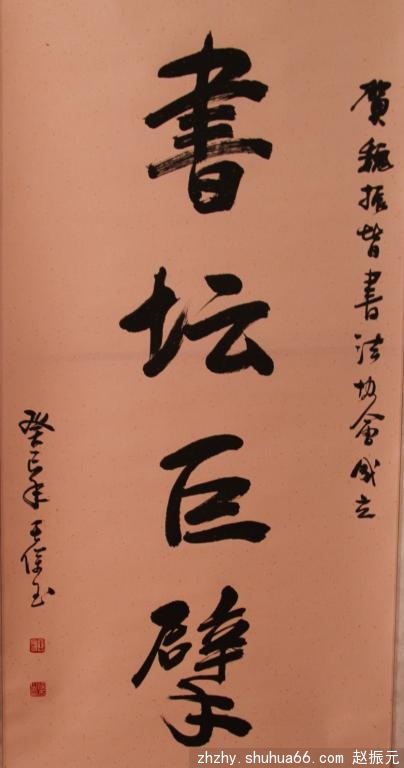 贺魏振皆书法协会成立
書坛巨擘
癸巳年 王保玉
zhzhy.shuhua66.com 赵振元